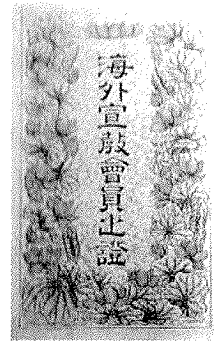 海外宣教會員之證